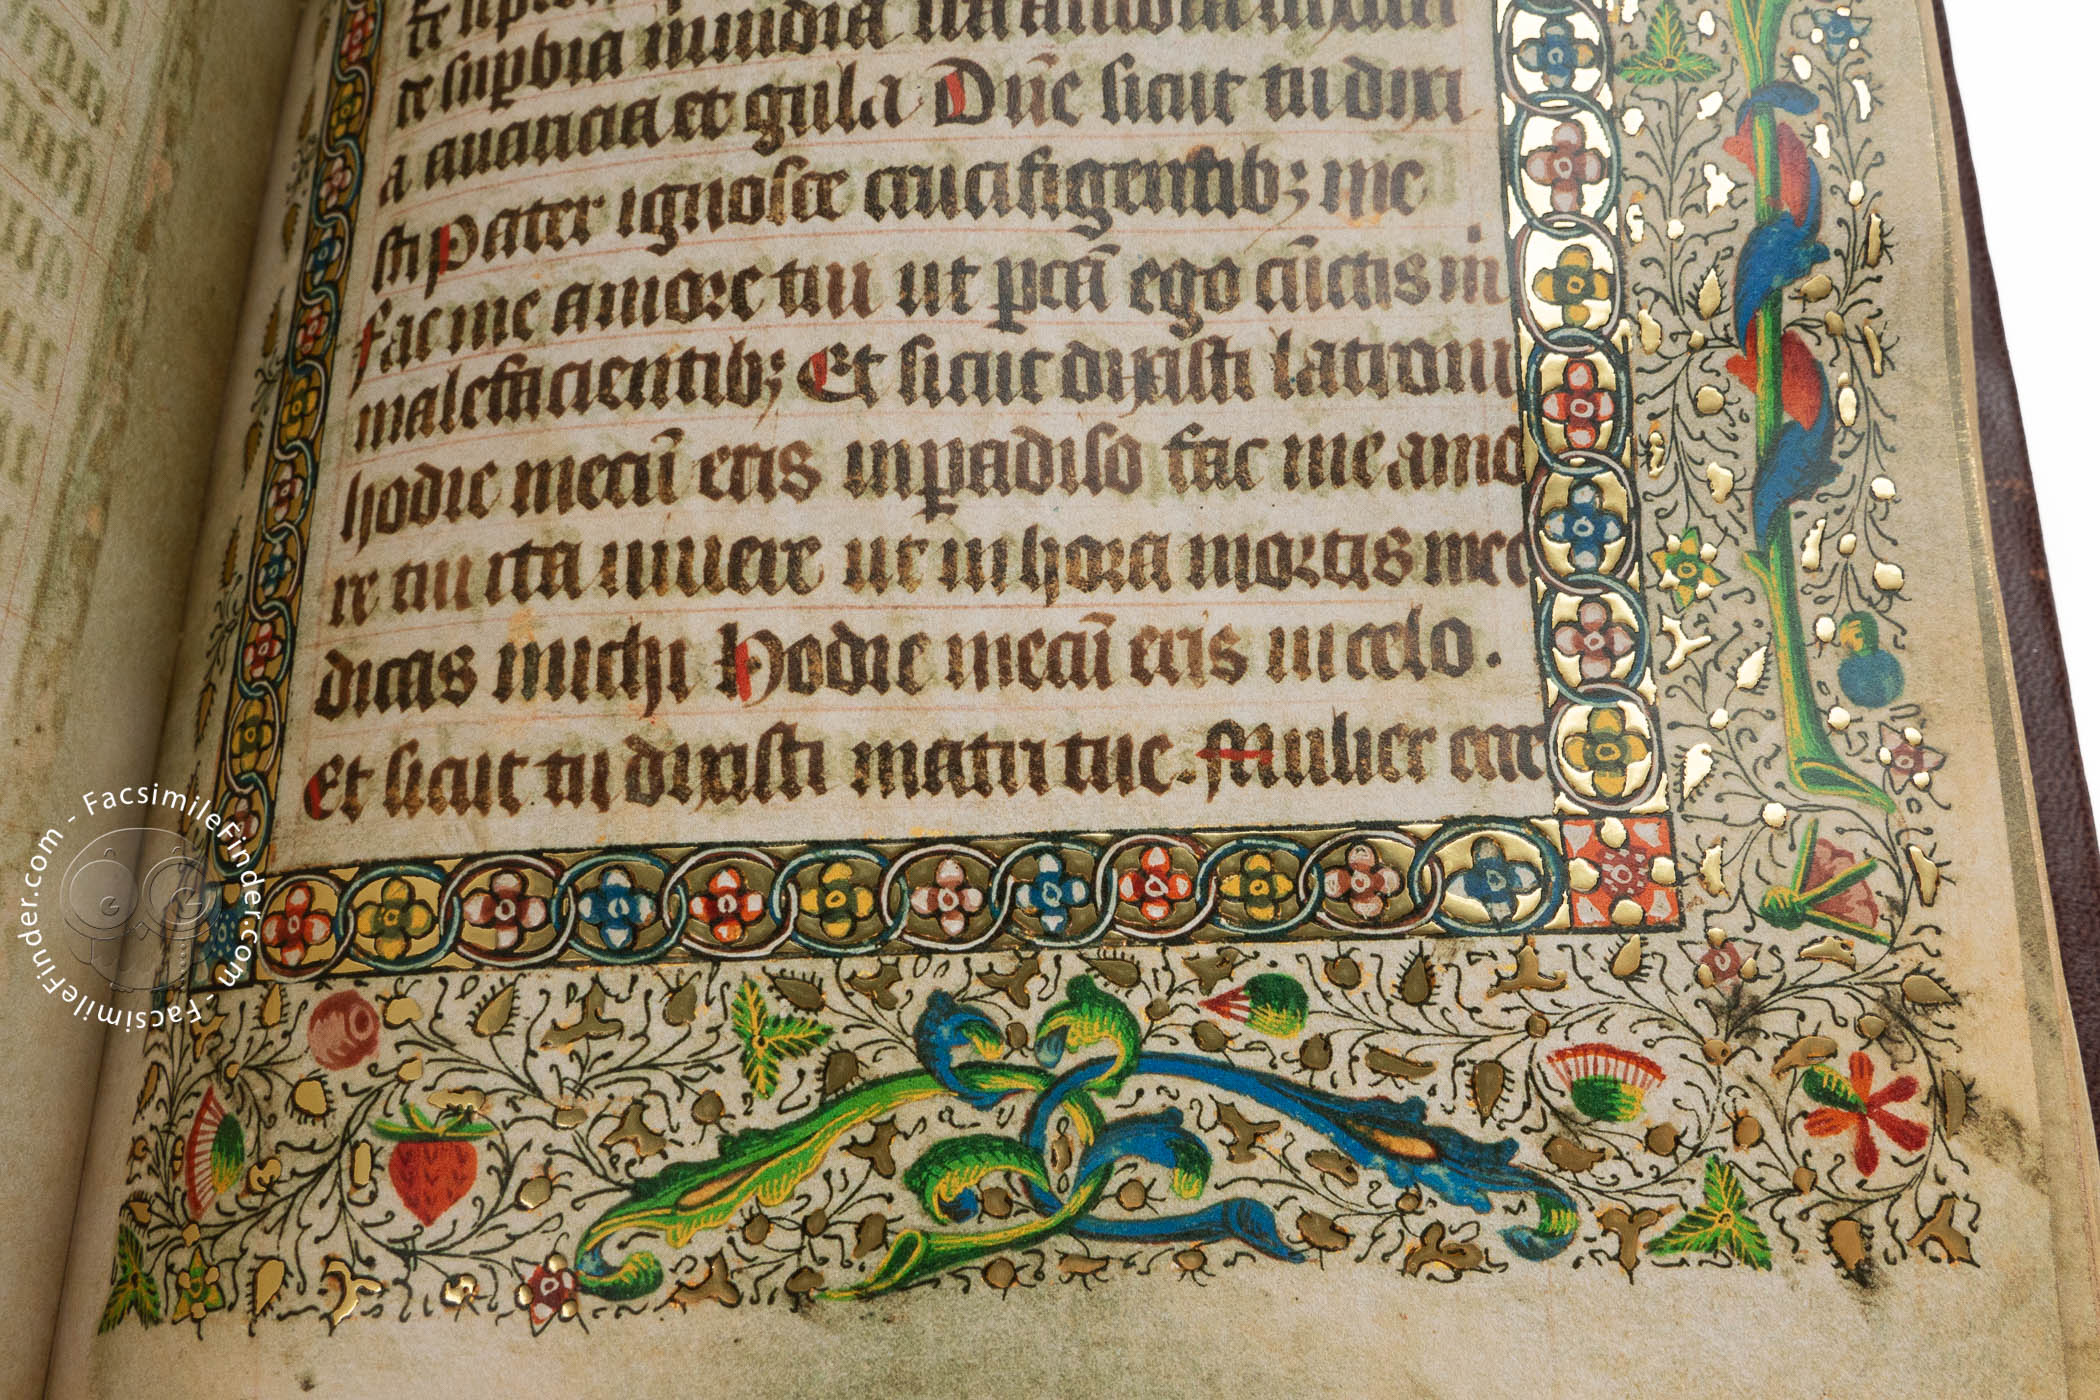 de supbia inuidia ira
a auaricia et gula Dñe sicut tu dixi
sti Pater ignosce crucifigentib; me
fac me amore tui ut pctā ego cūctis m̄
malefacientib; Et sicut dixisti latroni
hodie mecū eris in padiso fac me amo
re tui ita uiuere ut in hora mortis mee
dicas michi Hodie mecū eris in celo.
Et sicut tu dixisti matri tue. Mulier ecce
FacsimileFinder.com - FacsimileFinder.com - FacsimileFinder.com